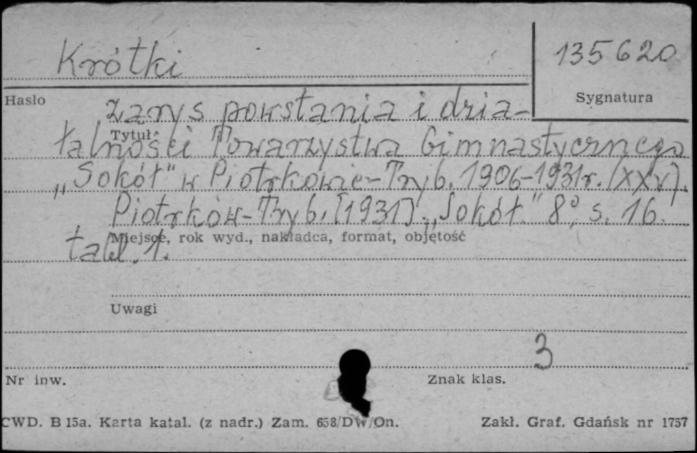 Krótki
135620
Hasło
Sygnatura
zarys powstania i dzia-
Tytuł
łalności Towarzystwa Gimnastycznego
„Sokół" w Piotrkowie-Tryb. 1906-1931r. (XXV).
Piotrków-Tryb. [1931]. „Sokół." 8°, s. 16.
Miejsce, rok wyd., nakładca, format, objętość
tabl. 1.
Uwagi
3
Nr inw.
Znak klas.
CWD. B 15a. Karta katal. (z nadr.) Zam. 658/DW/On.
Zakł. Graf. Gdańsk nr 1757